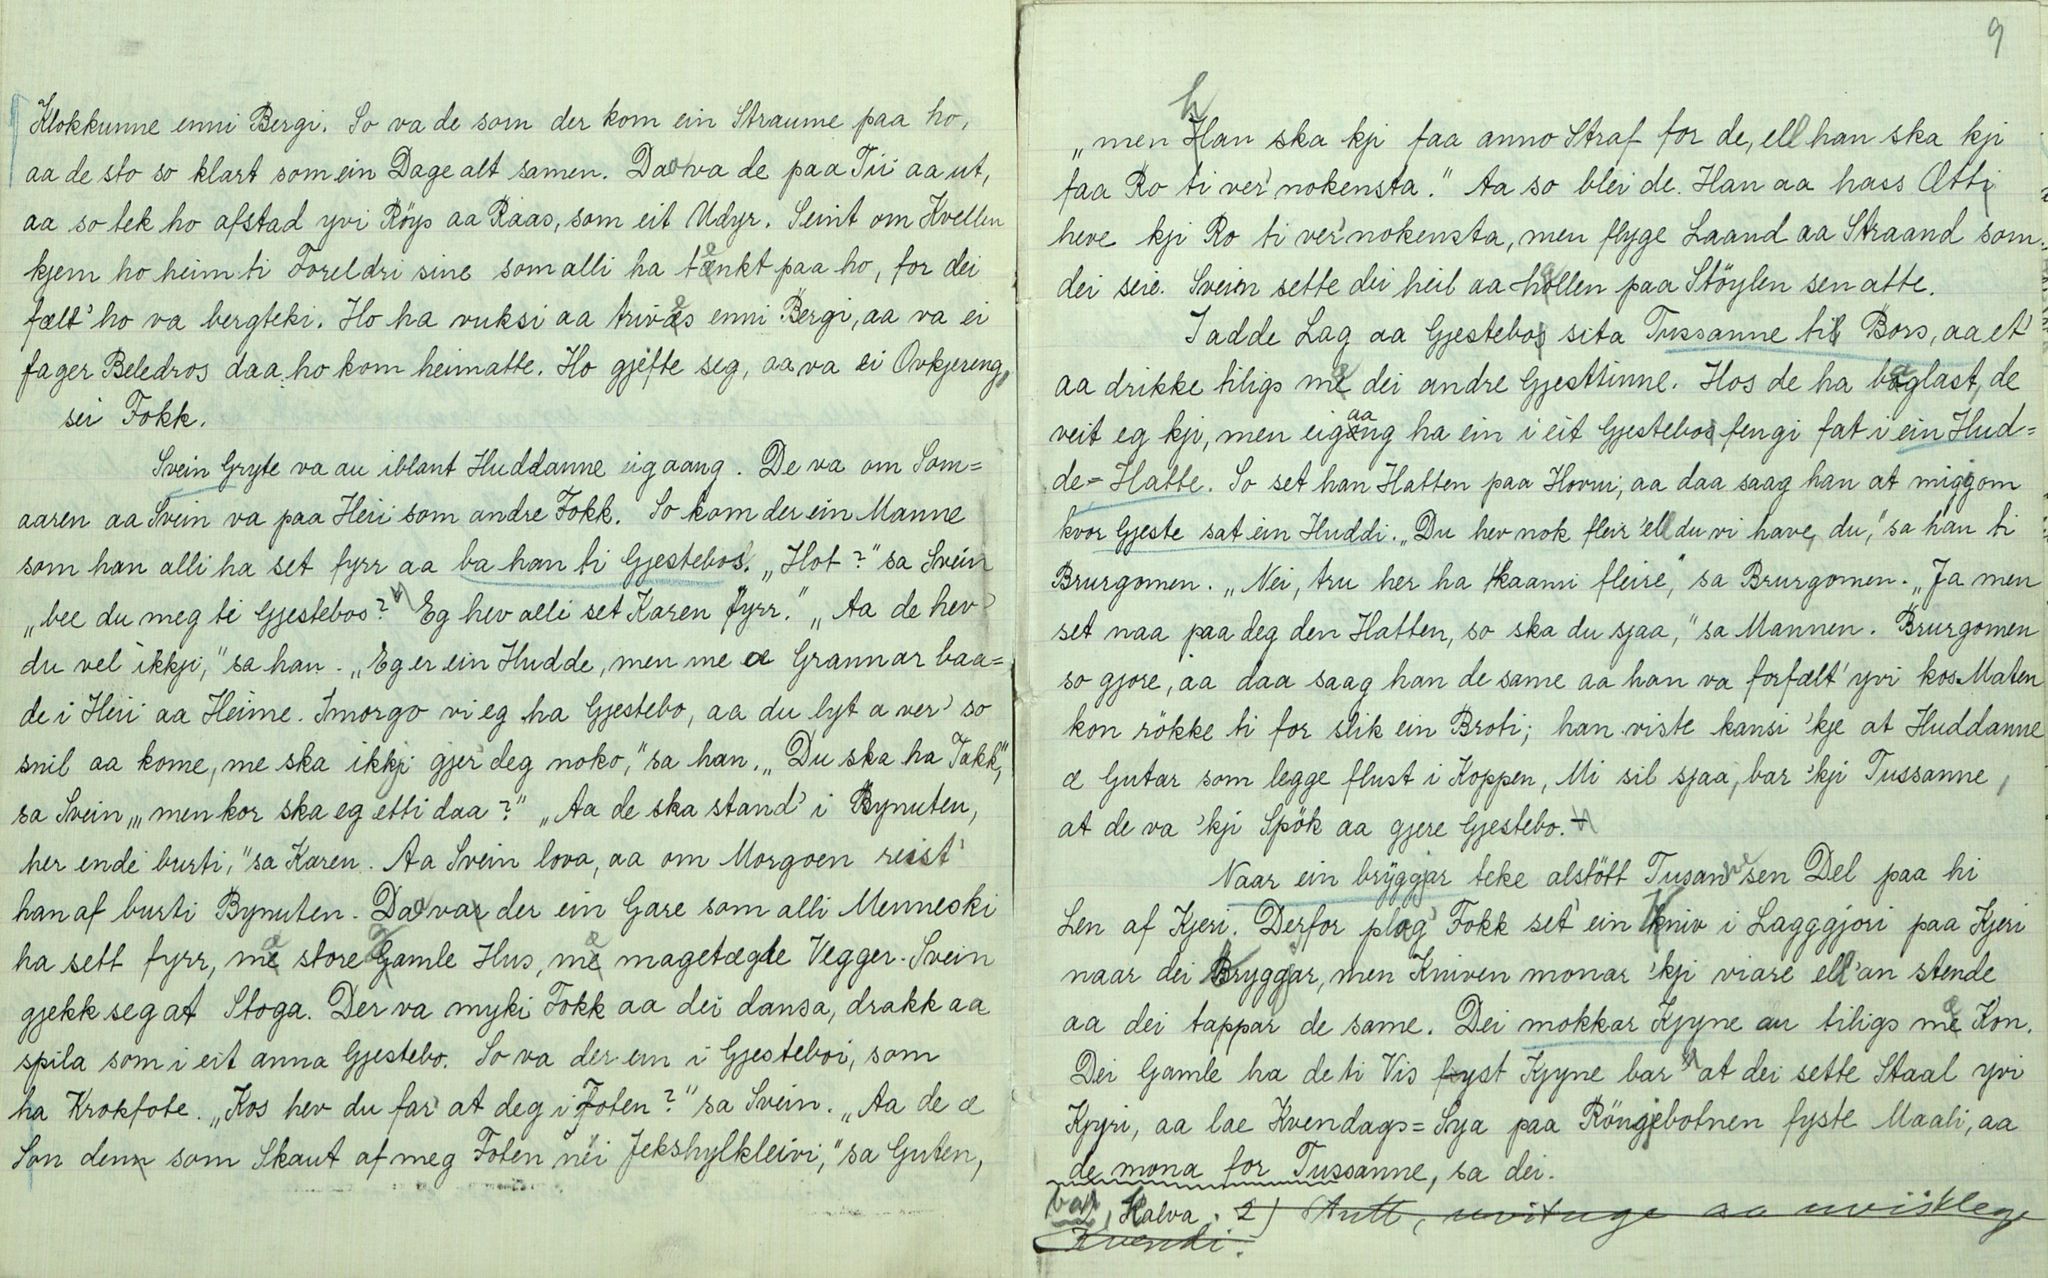 Klokkunne enni Bergi. So va de som der kom ein Straume paa ho,
aa de sto so klart som ein Dage alt samen. Daa va de paa Tii aa ut,
aa so tek ho afstad yvi Röys aa Raas, som eit Udyr. Seint om Kvellen
kjem ho heim ti Foreldri sine som alli ha tenkt paa ho, for dei
fælt' ho va bergteki. Ho ha vuksi aa trives enni Bergi, aa va ei
fager Beledros daa ho kom heimatte. Ho gjefte seg, aa va ei Ovkjereng,
sei Fokk.
Svein Gryte va au iblant Huddanne eigaang. De va om Som=
aaren aa Svein va paa Heii som andre Fokk. So kom der ein Manne
som han alli ha set fyrr aa ba han ti Gjestebos. „Hot?" sa Svein
„bee du meg ti Gjestebos? Eg hev alli set Karen fyrr." „Aa de hev
du vel ikkji," sa han. „Eg er ein Hudde, men me æ Grannar baa=
de i Heii aa Heime. Imorgo vi eg ha Gjestebo, aa du lyt a ver' so
snil aa kome, me ska ikkji gjer' deg noko," sa han. „Du ska ha Takk,"
sa Svein, „men kor ska eg etti daa?" „Aa de ska stand' i Bynuten,
her ende burti," sa Karen. Aa Svein lova, aa om Morgoen reist'
han af burti Bynuten. Daa var der ein Gare som alli Menneski
ha sett fyrr, mæ store gamle Hus, mæ magetægde Vegger. Svein
gjekk seg at Stoga. Der va myki Fokk aa dei dansa, drakk aa
spila som i eit anna Gjestebo. So va der ein i Gjesteboi, som
ha Krokfote. „Kos hev du far' at deg i Foten?" sa Svein. „Aa de æ
Son denn som Skaut af meg Foten nei Jekshylkleivi," sa Guten,
9
„men han ska kji faa anno Straf for de, ell han ska kji
faa Ro ti ver' nokensta." Aa so blei de. Han aa hass Ætti
heve kji Ro ti ver' nokensta, men flyge Laand aa Straand som
dei seie. Svein sette dei heil aa hollen paa Stöylen sen atte.
I adde Lag aa Gjestebos sita Tussanne til Bors, aa et'
aa drikke tiligs mæ dei andre Gjestinne. Hos de ha baglast, de
veit eg kji, men eigaang ha ein i eit Gjestebos fengi fat i ein Hud=
de=Hatte. So set han Hatten paa Hovui, aa daa saag han at miggom
kvor Gjeste sat ein Huddi. „Du hev nok fleir' ell du vi have, du," sa han ti
Brurgomen. „Nei, tru her ha kaami fleire," sa Brurgomen. „Ja men
set naa paa deg den Hatten, so ska du sjaa," sa Mannen. Brurgomen
so gjore, aa daa saag han de same aa han va forfælt' yvi kos Maten
kon rökke ti for slik ein Broti; han viste kansi 'kje at Huddanne
æ Gutar som legge flust i Koppen, Mi sil sjaa, bar 'kji Tussanne,
at de va 'kji Spök aa gjere Gjestebo.
Naar ein bryggjar teke alstött Tusann sen Del paa hi
Len af Kjeri. Derfor plag' Fokk set' ein Kniv i Lagggjori paa Kjeri
naar dei Bryggjar, men Kniven monar 'kji viare ell 'an stende
aa dei tappar de same. Dei mokkar Kjyne au tiligs mæ Kon.
Dei Gamle ha de ti Vis fyst Kjyne bar at dei sette Staal yvi
Kjyri, aa lae Kvendags=Sya paa Röngjebotnen fyste Maali, aa
de mona for Tussanne, sa dei.
bar, Kalva. 2)
Kvendi.